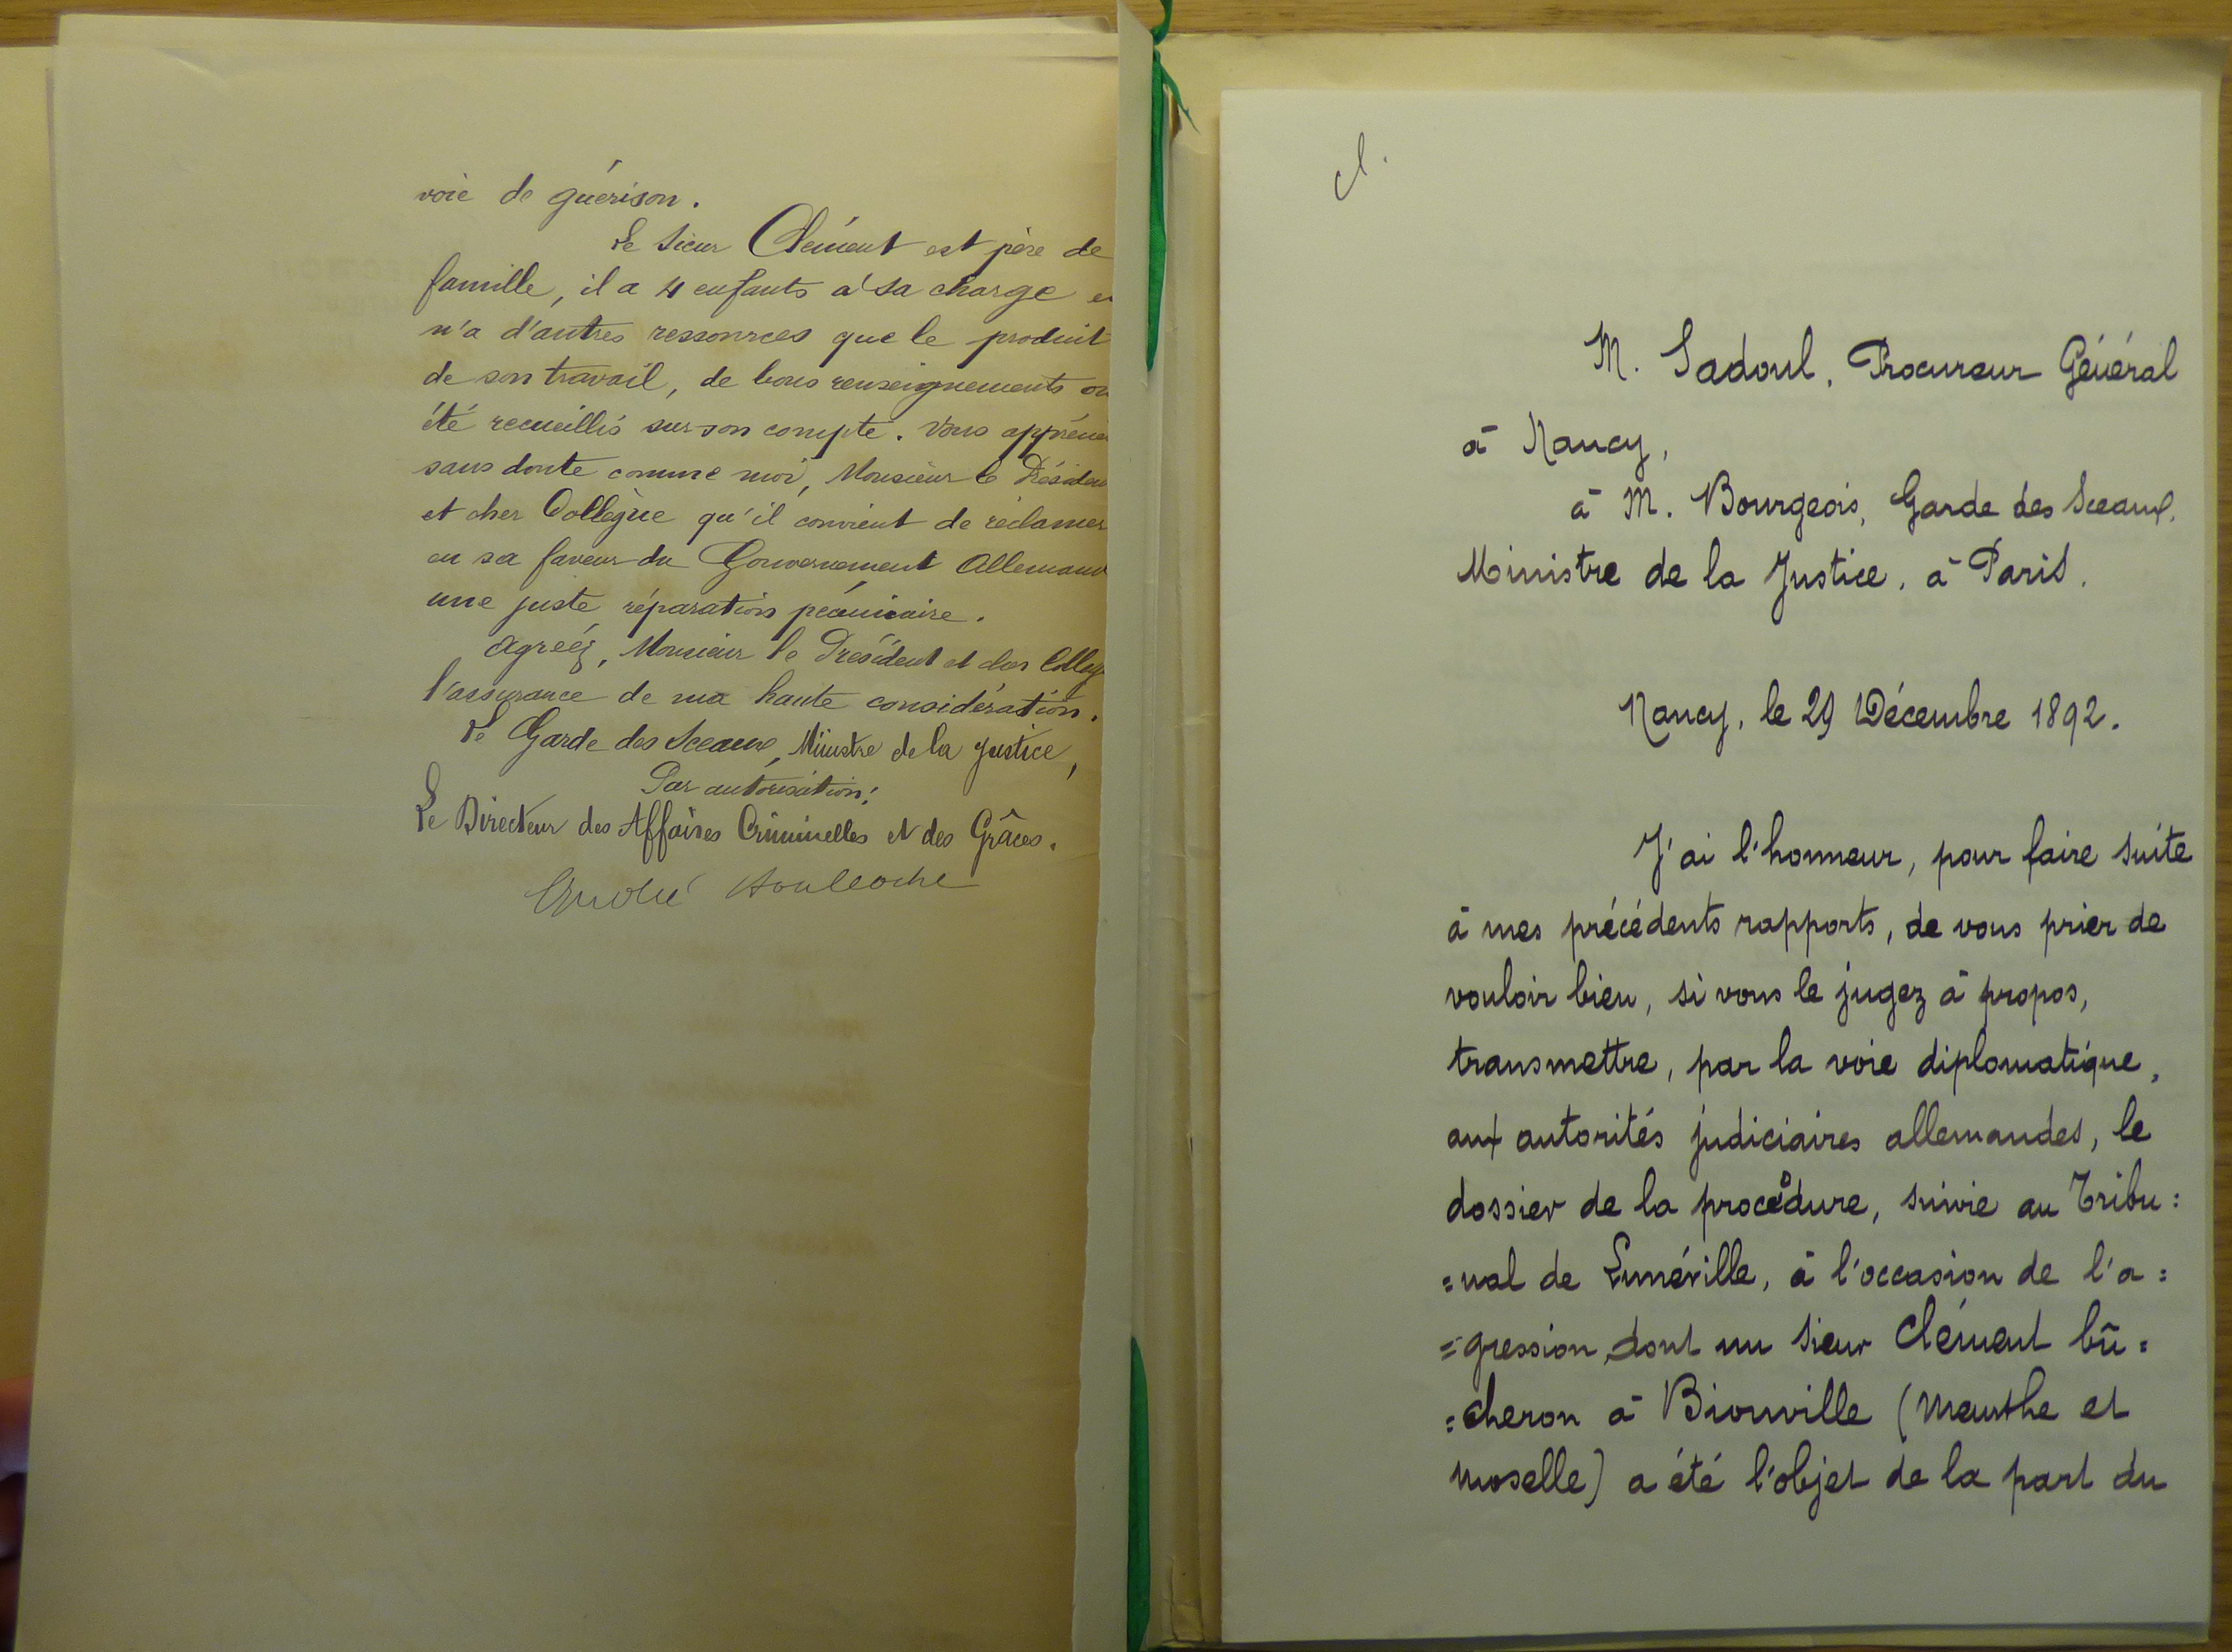 voie de guérison.
Le sieur Clément est père de
famille, il a 4 enfants à sa charge et
n'a d'autres ressources que le produit
de son travail, de bons renseignements on
été recueillis sur son compte. Vous
sans doute comme moi, Monsieur le Présiden
et cher Collègue qu'il convient de réclamer
en sa faveur du Gouvernement Allemand
une juste réparation pécuniaire.
Agréez, Monsieur le Président et cher Collèg
l'assurance de ma haute considération.
Le Garde des Sceaux, Ministre de la Justice,
Par autorisation:
Le Directeur des Affaires Criminelles et des Grâces.
André Boulloche
cl.
M. Sadoul, Procureur Général
à Nancy,
à M. Bourgeois, Garde des Sceaux.
Ministre de la Justice, à Paris.
Nancy, le 29 Décembre 1892.
J'ai l'honneur, pour faire suite
à mes précédents rapports, de vous prier de
vouloir bien, si vous le jugez à propos,
transmettre, par la voie diplomatique,
aux autorités judiciaires allemandes, le
dossier de la procédure, suivie au Tribu=
=nal de Lunéville, à l'occasion de l'a=
=gression dont un sieur Clément bû=
=cheron à Bionville (Meurthe et
Moselle) a été l'objet de la part du